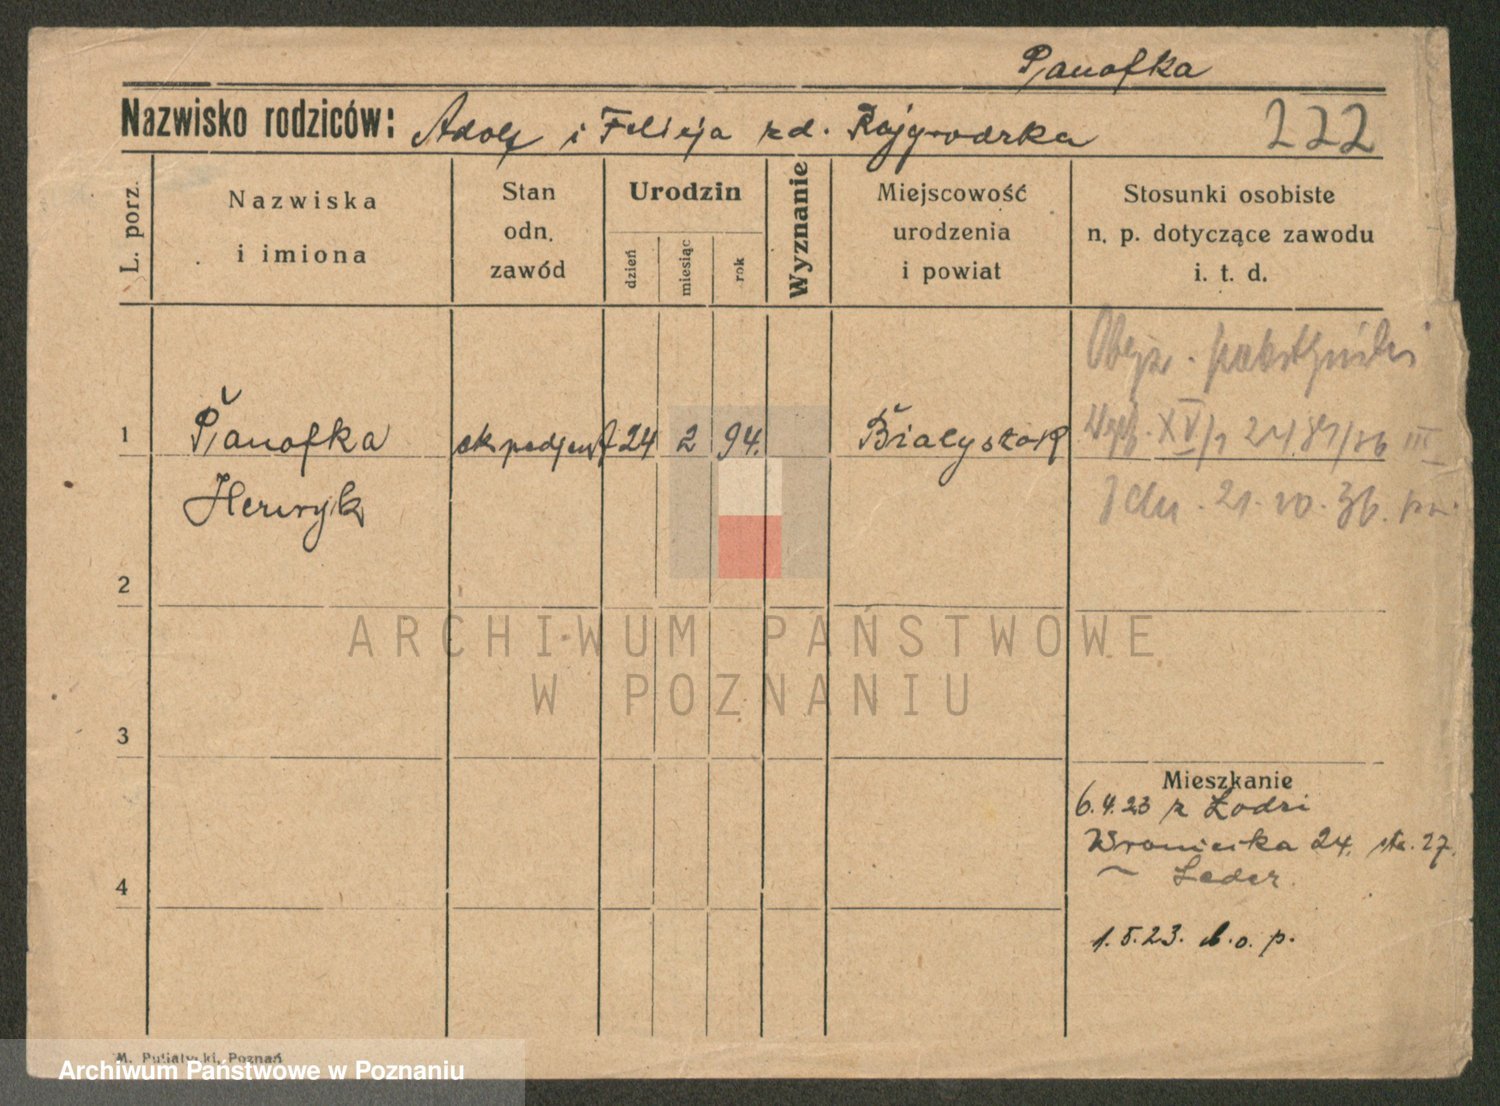 Panofka
Nazwisko rodziców: Adolf i Felicja zd. Rajgrodzka
222
L. porz.
Nazwiska
i imiona
Stan
odn.
zawód
Urodzin
dzień
miesiąc
rok
Wyznanie
Miejscowość
urodzenia
i powiat
Stosunki osobiste
n. p. dotyczące zawodu
i. t. d.
1
Panofka
Henryk
ekspedjent
24
2
94.
Białystok
Obyw.
XV/1
III
21.10.36.
2
3
4
Mieszkanie
6.4.23 z Łodzi
Wroniecka 24. 27.
Leder
1.5.23. b.o.p.
M. Putiatycki, Poznań
ARCHIWUM PAŃSTWOWE
W POZNANIU
Archiwum Państwowe w Poznaniu